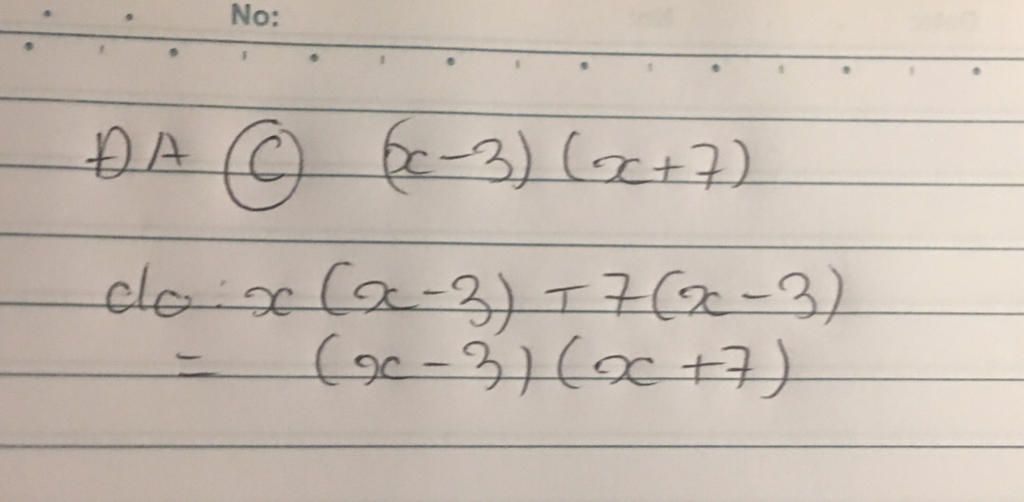 No:
ĐA C (x-3)(x+7)
do: x(x-3)+7(x-3)
= (x-3)(x+7)